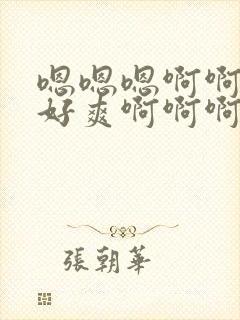 嗯嗯嗯啊啊
好爽啊啊啊
張朝華